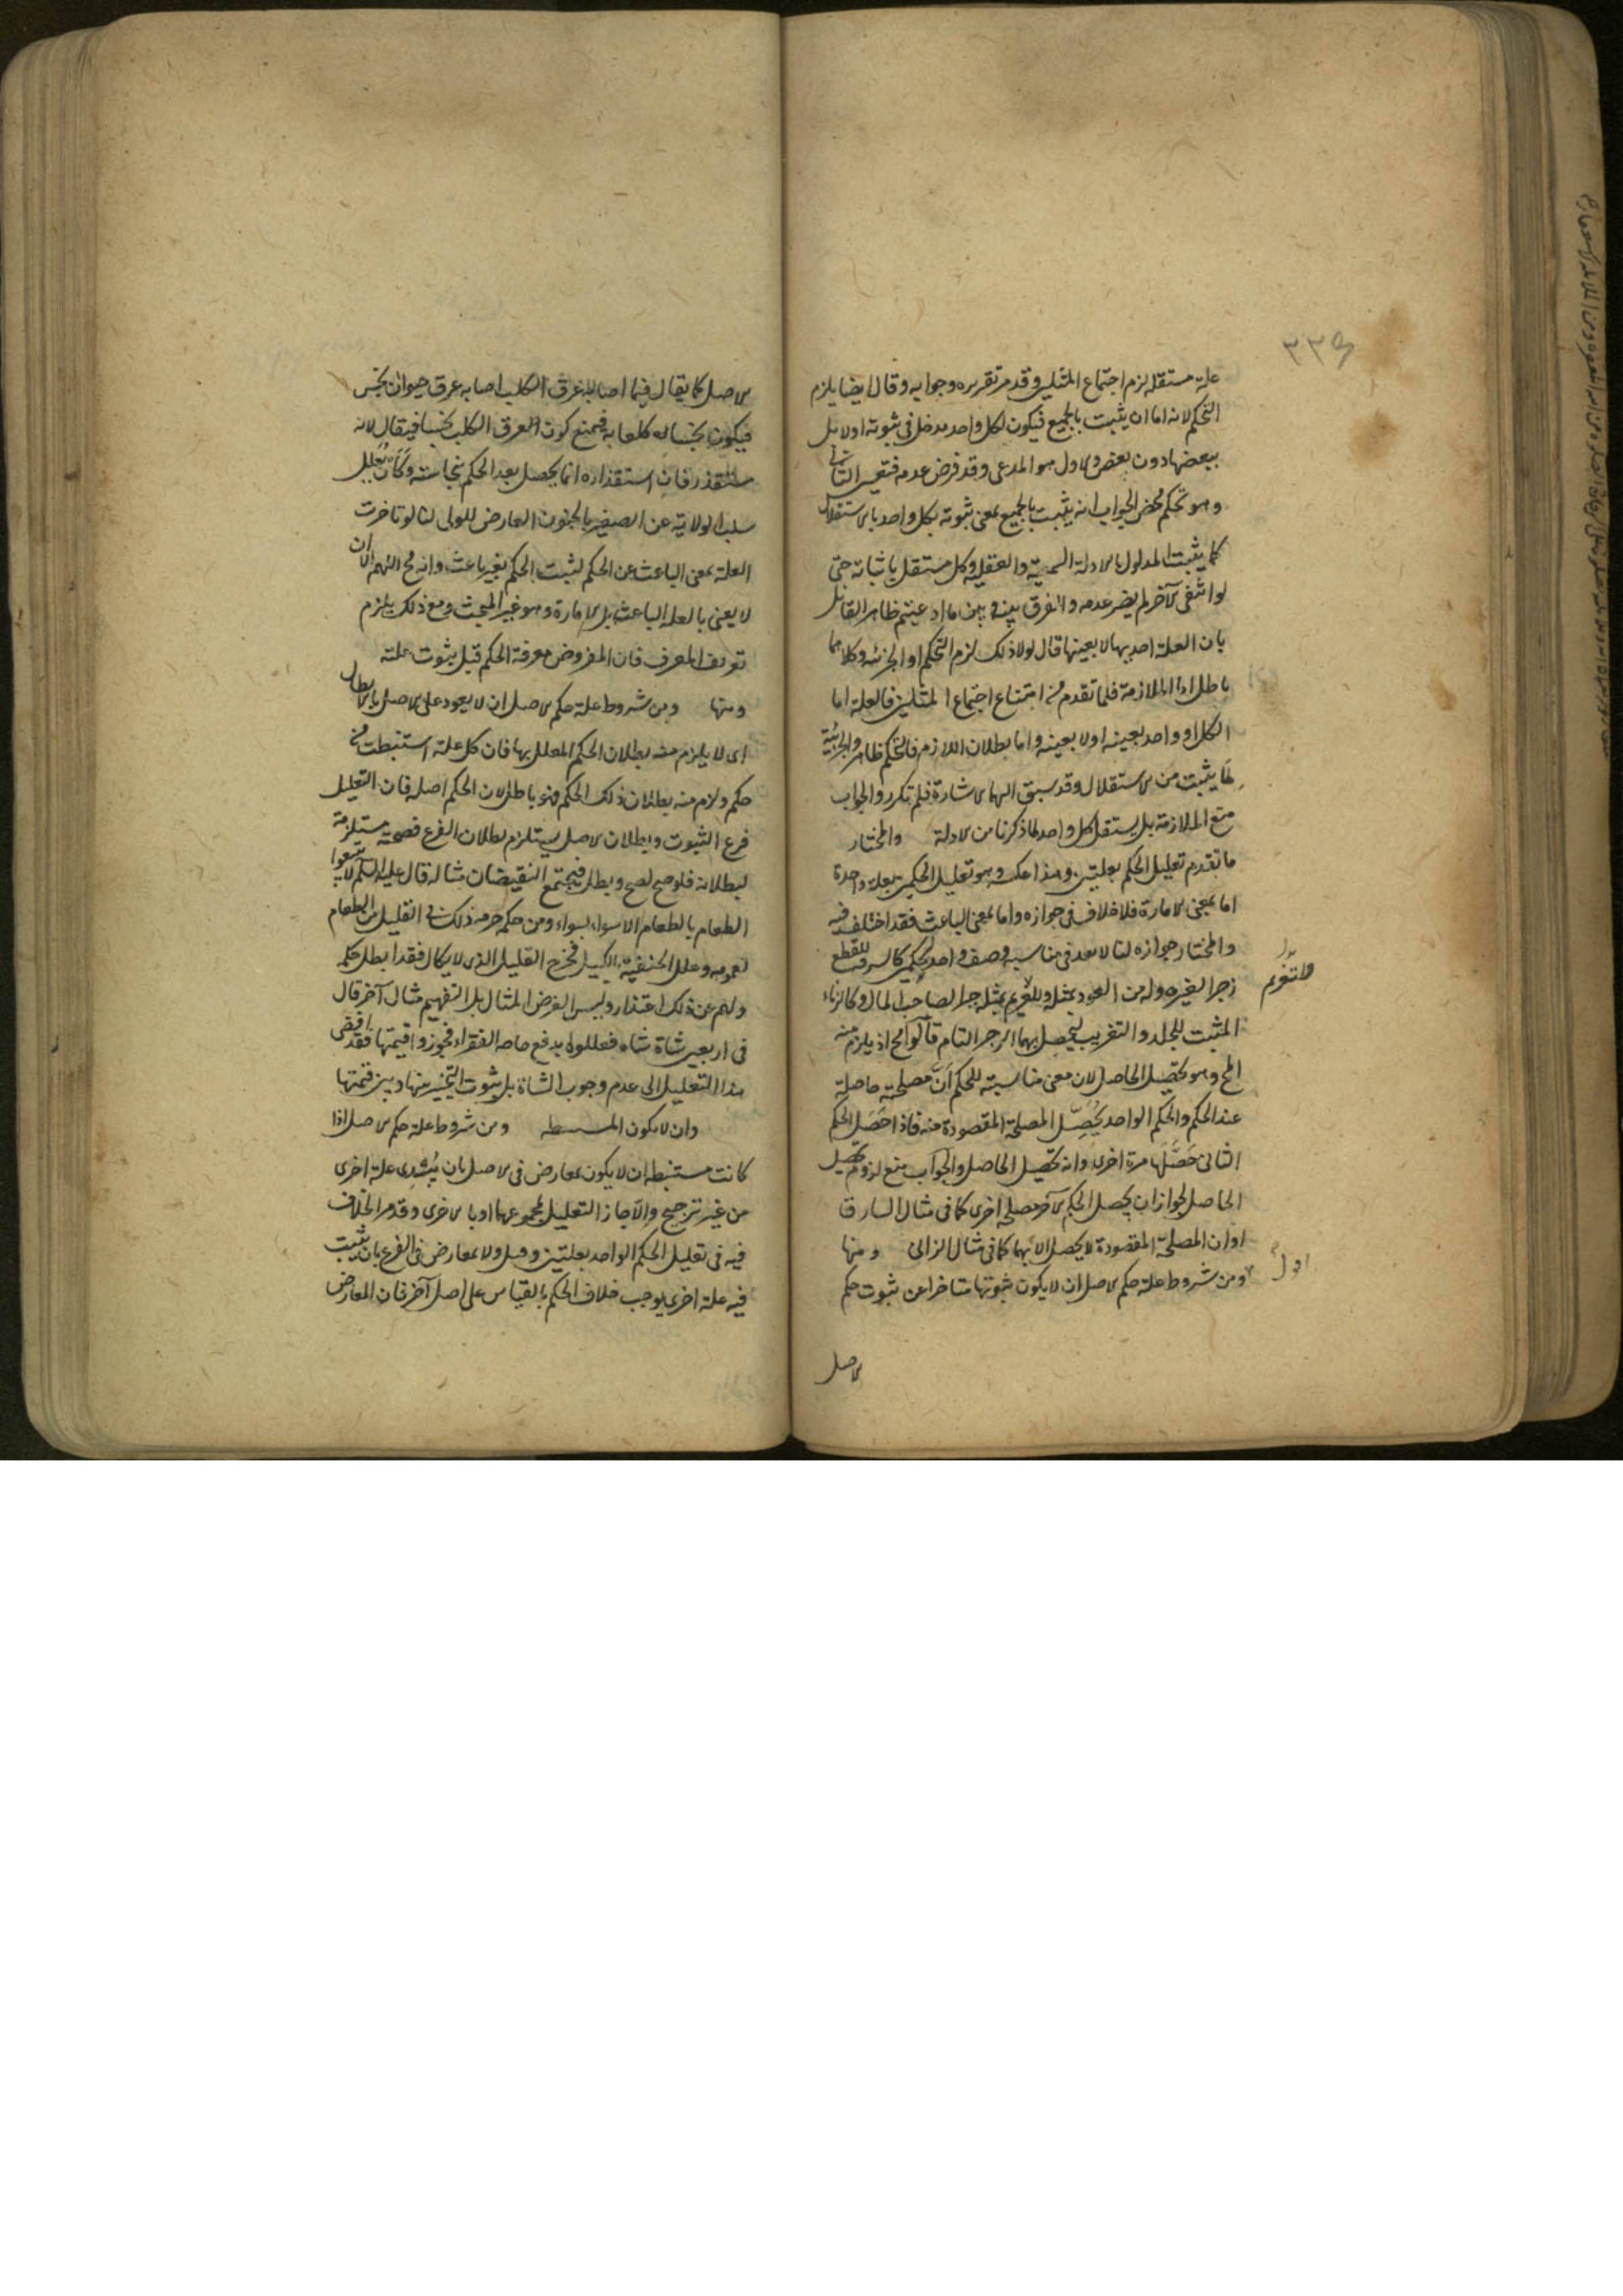 ٣٣٩
علة مستقلة لزم اجتماع المثلين وقد مر تقريره وجوابه وقال ايضا يلزم
التحكم لانه اما ان يثبت بالجميع فيكون لكل واحد مدخل في ثبوته اولا بل
ببعضها دون بعض والاول هو المدعى وقد فرض عدمه فتعين الثاني
وهو تحكم محض الجواب انه يثبت بالجميع بمعنى ثبوته بكل واحد بالاستقلال
كما يثبت المدلول بالادلة السمعية والعقلية وكل مستقل باثباته حتى
لو انتفى الآخر لم يضر عدمه والفرق بينه وبين ما ادعيتم ظاهر القائل
بان العلة احديها لا بعينها قال لولا ذلك لزم التحكم او الجزئية وكلاهما
باطل اما الملازمة فلما تقدم من امتناع اجتماع المثلين فالعلة اما
الكل او واحد بعينه اولا بعينه واما بطلان اللازم فالتحكم ظاهر والجزئية
لما يثبت من الاستقلال وقد سبق اليها الاشارة فلم تكرر والجواب
منع الملازمة بل يستقل كل واحد لما ذكرنا من الادلة والمختار
ما تقدم تعليل الحكم بعلتين وهذا عكسه وهو تعليل الحكمين بعلة واحدة
اما بمعنى الامارة فلا خلاف في جوازه واما بمعنى الباعث فقد اختلف فيه
والمختار جوازه لنا لا بعد في مناسبة وصف واحد لحكمين كالسرقة للقطع
زجرا لغيره وله من العود بمثله وللغريم بمثله جبرا لصاحب المال وكالزناء
والتغريم
المثبت للجلد والتغريب ليحصل بهما الزجر التام قالوا مح اذ يلزم منه
المح وهو تحصيل الحاصل لان معنى مناسبته للحكم ان مصلحته حاصلة
عند الحكم والحكم الواحد يحصل المصلحة المقصودة منه فاذا حصل الحكم
الثاني حصلها مرة اخرى وانه تحصيل الحاصل والجواب منع لزوم تحصيل
الحاصل لجواز ان يحصل الحكم الآخر مصلحة اخرى كما في مثال السارق
او ان المصلحة المقصودة لا يحصل الا بهما كما في مثال الزاني ومنها
ومن شروط علة حكم الاصل ان لا يكون ثبوتها متاخرا عن ثبوت حكم
الاصل
الاصل كما يقال فيما اصابه عرق الكلب اصابه عرق حيوان نجس
فيكون نجسا كلعابه فيمنع كون العرق الكلب نجسا فيقال لانه
مستقذر فان استقذاره انما يحصل بعد الحكم بنجاسته وكان يعلل
سلب الولاية عن الصغير بالجنون العارض للولي لنا لو تاخرت
العلة بمعنى الباعث عن الحكم لثبت الحكم بغير باعث وانه مح اللهم الا ان
لا يعنى بالعلة الباعث بل الامارة وهو غير المبحث ومع ذلك يلزم
تعريف المعرف فان المفروض معرفة الحكم قبل ثبوت علته
ومنها ومن شروط علة حكم الاصل ان لا يعود على الاصل بالابطال
اى لا يلزم منه بطلان الحكم المعلل بها فان كل علة استنبطت من
حكم ولازم منه بطلان ذلك الحكم فهو باطل لان الحكم اصله فان التعليل
فرع الثبوت وبطلان الاصل يستلزم بطلان الفرع فصحته مستلزمة
لبطلانه فلو صح لصح وبطل فيجتمع النقيضان مثاله قال عليه السلم لا تبيعوا
الطعام بالطعام الا سواء بسواء ومن حكمه حرمه ذلك في القليل من الطعام
لعمومه وعلل الحنفية بالكيل فخرج القليل الذى لا يكال فقد ابطل حكمه
ولهم عن ذلك اعتذار وليس الغرض المثال بل التفهيم مثال آخر قال
في اربعين شاة شاه فعللوه بدفع حاجة الفقراء فجوزوا قيمتها فقد افضى
هذا التعليل الى عدم وجوب الشاة بل ثبوت التخيير بينها وبين قيمتها
وان لا يكون المستنبطه ومن شروط علة حكم الاصل اذا
كانت مستنبطه ان لا يكون بمعارض في الاصل بان يبدى علة اخرى
من غير ترجيح والا جاز التعليل بمجموعهما او بالاخرى وقد مر الخلاف
فيه في تعليل الحكم الواحد بعلتين وقيل ولا بمعارض في الفرع بان يثبت
فيه علة اخرى يوجب خلاف الحكم بالقياس على اصل آخر فان المعارض